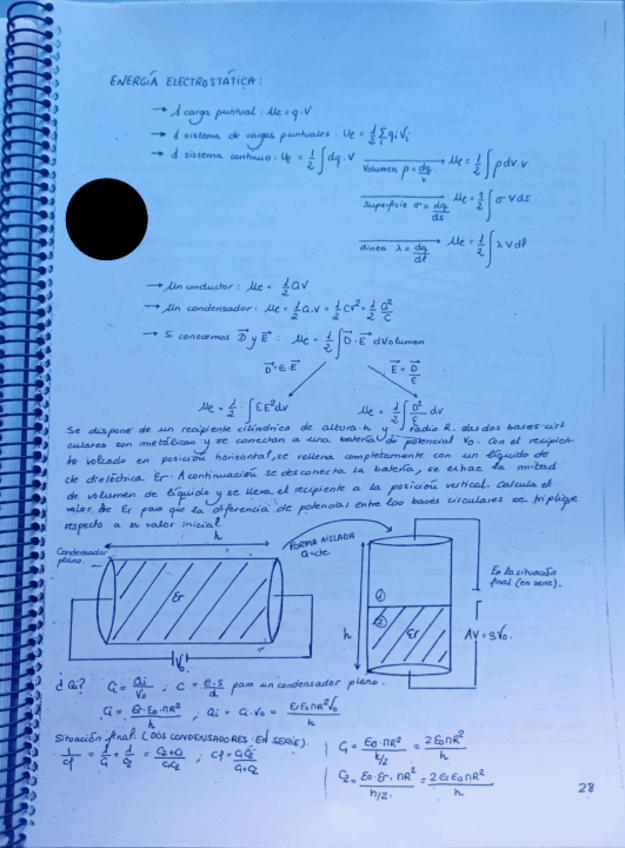 ENERGÍA ELECTROSTÁTICA:
→ 1 carga puntual: Ue = q·V
→ 1 sistema de cargas puntuales: Ue = 1/2 Σi qi Vi
→ 1 sistema continuo: Ue = 1/2 ∫ dq·V Volumen ρ = dq/v Ue = 1/2 ∫ ρ dv·v
superficie σ = dq/ds Ue = 1/2 ∫ σ V ds
Línea λ = dq/dl Ue = 1/2 ∫ λ V dl
→ Un conductor: Ue = 1/2 QV
→ Un condensador: Ue = 1/2 Q.V = 1/2 CV² = 1/2 Q²/C
→ Si conocemos D⃗ y E⃗: Ue = 1/2 ∫ D⃗·E⃗ dVolumen
D⃗ = ε·E⃗ E⃗ = D⃗/ε
Ue = 1/2 · ∫ εE² dv Ue = 1/2 ∫ D²/ε dv
Se dispone de un recipiente cilíndrico de altura h y radio R. Las dos bases cir
culares son metálicas y se conectan a una batería de potencial V0. Con el recipien
te volcado en posición horizontal, se rellena completamente con un líquido de
cte dieléctrica εr. A continuación se desconecta la batería, se extrae la mitad
de volumen de líquido y se lleva el recipiente a la posición vertical. Calcula el
valor de εr para que la diferencia de potencial entre las bases circulares se triplique
respecto a su valor inicial.
h
FORMA AISLADA
Q=cte
Condensador
plano.
εr
V0
h
①
②
εr
En la situación
final (en serie).
ΔV = 3V0.
¿Qi? Ci = Qi/V0 ; C = ε.s/d para un condensador plano.
Ci = εr·ε0·πR²/h ; Qi = Ci·V0 = εrε0πR²V0/h
Situación final. (DOS CONDENSADORES EN SERIE).
1/Cf = 1/C1 + 1/C2 = C2+C1/C1C2 ; Cf = C1C2/C1+C2
C1 = ε0·πR²/h/2 = 2ε0πR²/h
C2 = ε0·εr·πR²/h/2 = 2εrε0πR²/h
28